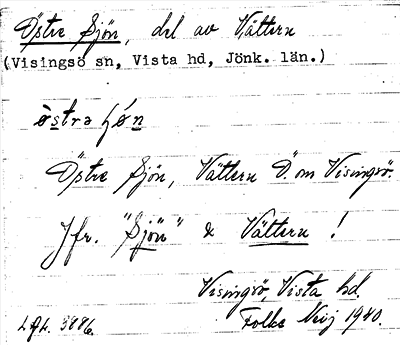 Östre Sjön, del av Vättern
(Visingsö sn, Vista hd, Jönk. län.)
Östre Sjön, Vättern Ö. om Visingsö.
Jfr. "Sjön" & Vättern !
Visingsö, Vista hd.
Folke 1940.